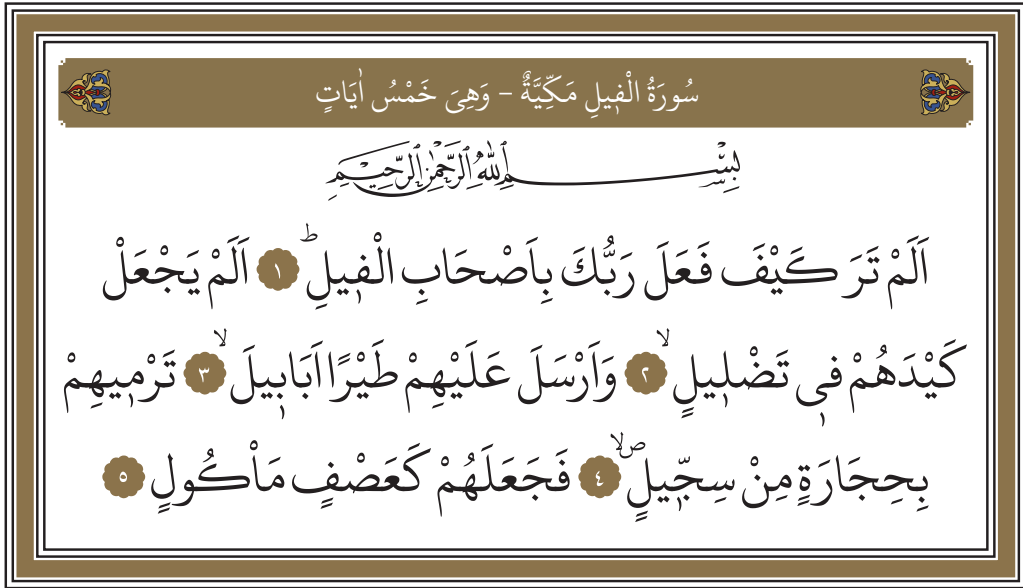 سُورَةُ الْفٖيلِ مَكِّيَّةٌ – وَهِىَ خَمْسُ اٰيَاتٍ
بِسْمِ اللّٰهِ الرَّحْمٰنِ الرَّحٖيمِ
اَلَمْ تَرَ كَيْفَ فَعَلَ رَبُّكَ بِاَصْحَابِ الْفٖيلِؕ ١ اَلَمْ يَجْعَلْ
كَيْدَهُمْ فٖى تَضْلٖيلٍۙ ٢ وَاَرْسَلَ عَلَيْهِمْ طَيْرًا اَبَابٖيلَۙ ٣ تَرْمٖيهِمْ
بِحِجَارَةٍ مِنْ سِجّٖيلٍۙۖ ٤ فَجَعَلَهُمْ كَعَصْفٍ مَاْكُولٍ ٥